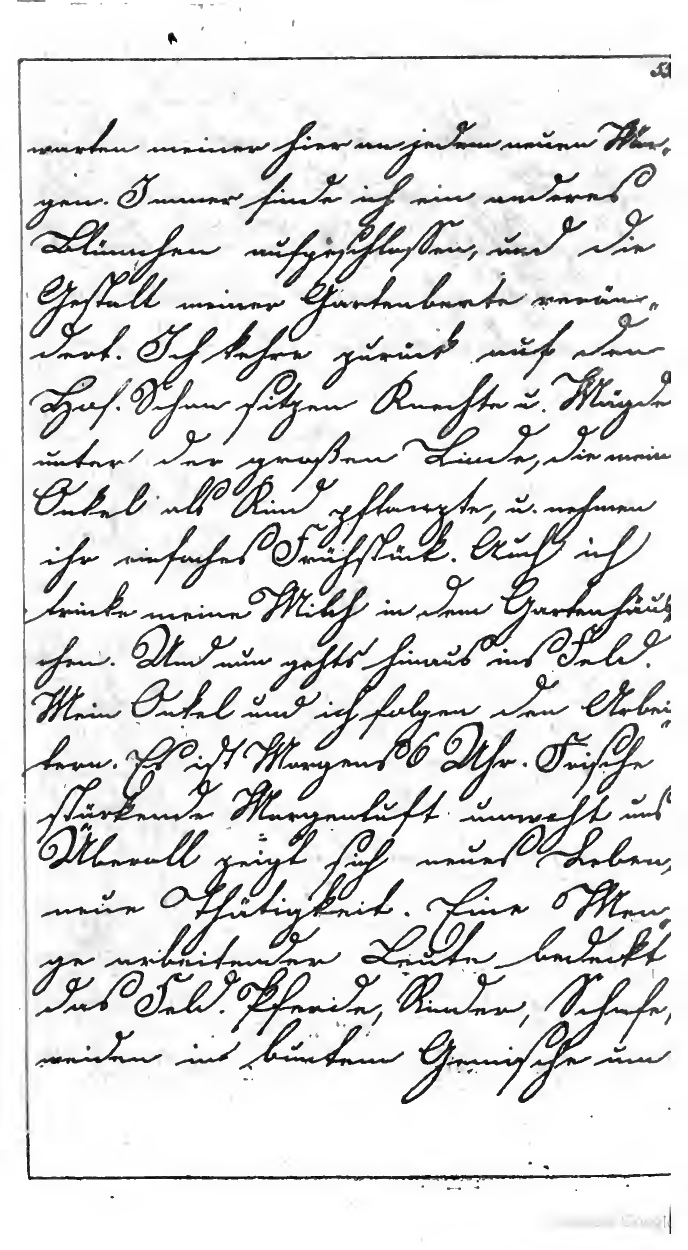 53
warten meiner hier an jedem neuen Mor-
gen. Immer finde ich ein anderes
Blümchen aufgeschlossen, und die
Gestalt meiner Gartenbeete verän-
dert. Ich kehre zurück auf den
Hof. Schon sitzen Knechte u. Mägde
unter der großen Linde, die mein
Onkel als Kind pflanzte, u. nehmen
ihr einfaches Frühstück. Auch ich
trinke meine Milch in dem Gartenhäus-
chen. Und nun gehts hinaus ins Feld.
Mein Onkel und ich folgen den Arbei-
tern. Es ist Morgens 6 Uhr. Frische
stärkende Morgenluft umweht uns
Überall zeigt sich neues Leben,
neue Thätigkeit. Eine Men-
ge arbeitender Leute bedeckt
das Feld. Pferde, Rinder, Schafe,
weiden in buntem Gemische um